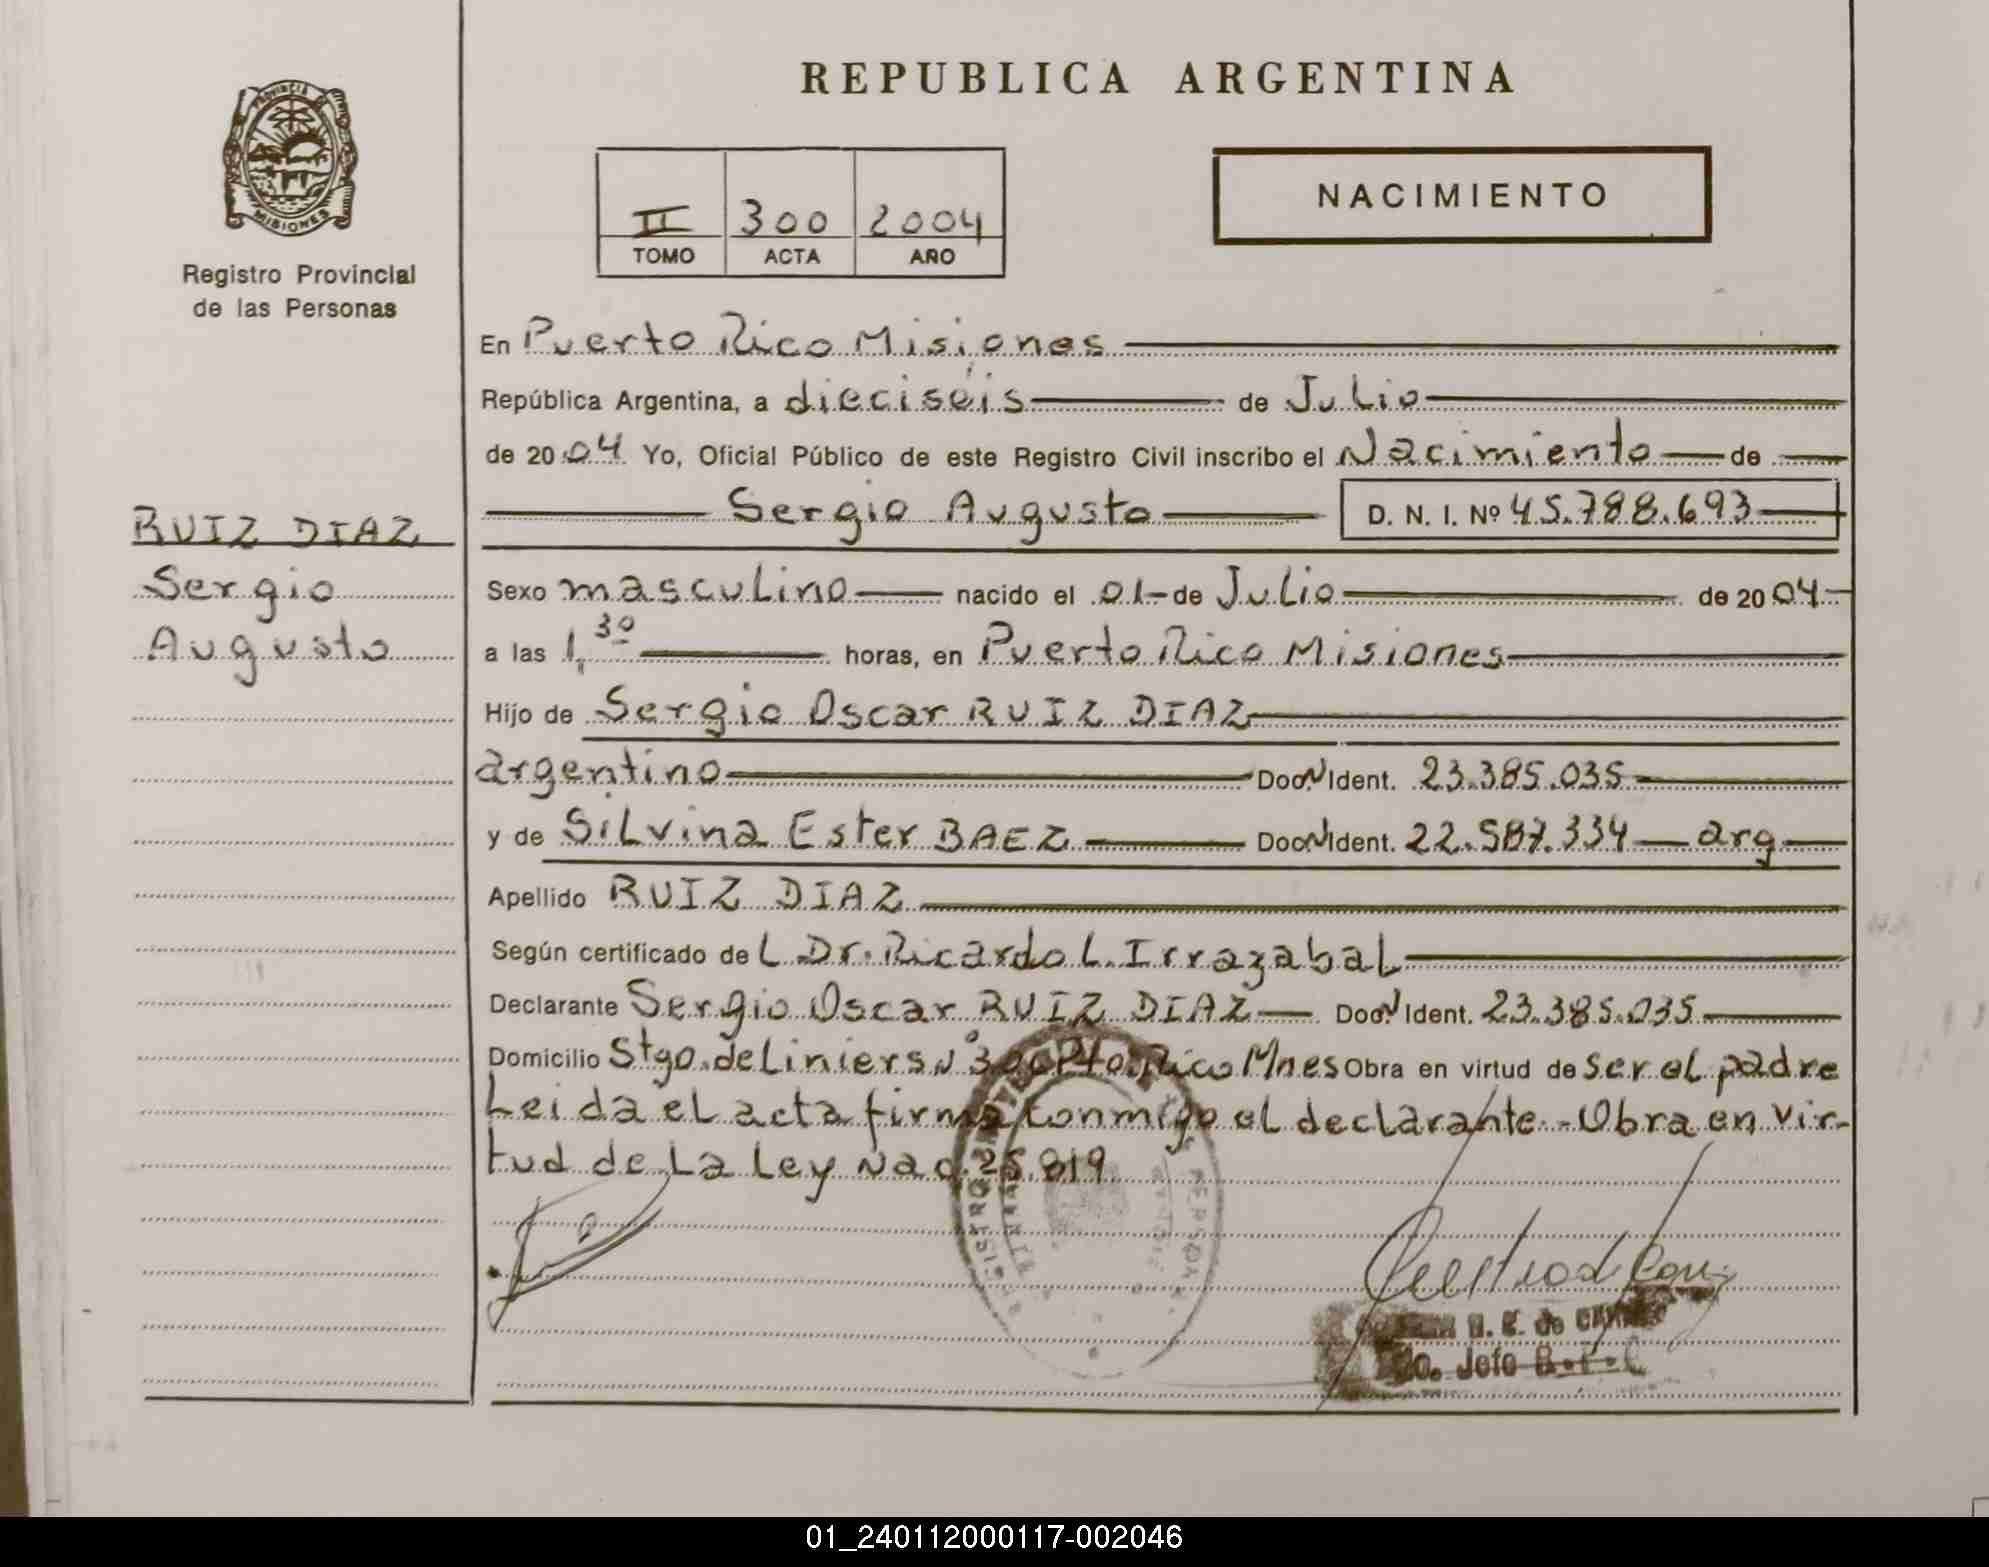 REPUBLICA ARGENTINA
PROVINCIA DE
MISIONES
Registro Provincial
de las Personas
II 300 2004
TOMO ACTA AÑO
NACIMIENTO
En Puerto Rico Misiones
República Argentina, a dieciséis de Julio
de 2004 Yo, Oficial Público de este Registro Civil inscribo el Nacimiento de
Sergio Augusto D. N. I. Nº 45.788.693
RUIZ DIAZ
Sergio
Augusto
Sexo masculino nacido el 01 de Julio de 2004
a las 1,30 horas, en Puerto Rico Misiones
Hijo de Sergio Oscar RUIZ DIAZ
argentino Doc. N Ident. 23.385.035
y de Silvina Ester BAEZ Doc. N Ident. 22.587.334 arg
Apellido RUIZ DIAZ
Según certificado de L Dr. Ricardo L. Irrazabal
Declarante Sergio Oscar RUIZ DIAZ Doc. N Ident. 23.385.035
Domicilio Stgo. de Liniers Nº 300 Pto. Rico Mnes Obra en virtud de ser el padre
Leida el acta firma conmigo el declarante.-Obra en vir-
tud de la Ley Nac. 25.819
de
Jefe
01_240112000117-002046